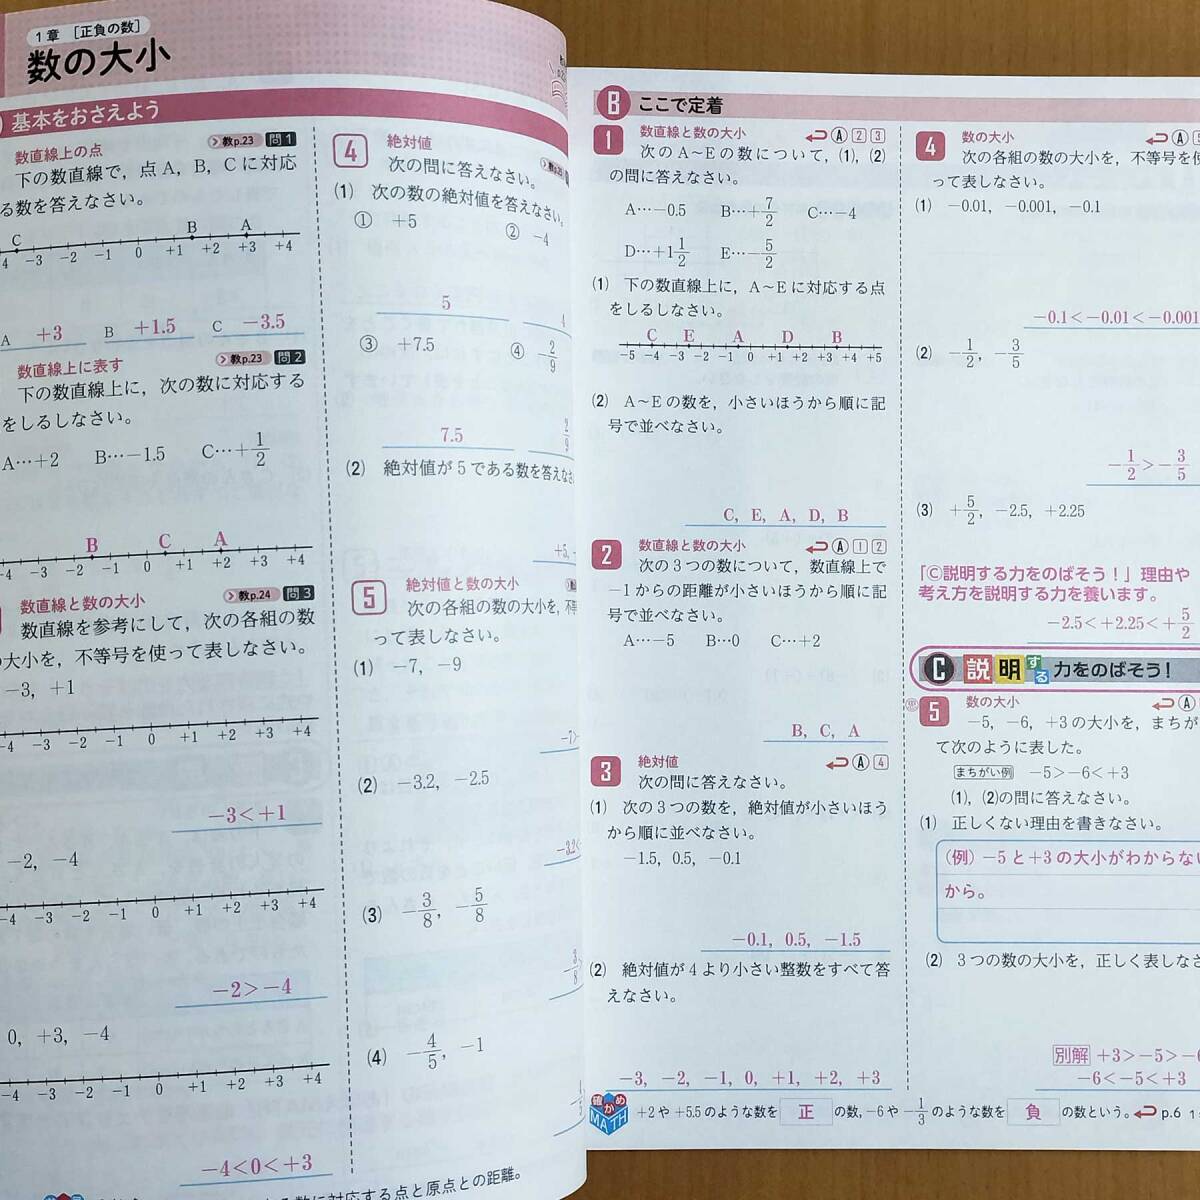 1章 [正負の数]
数の大小
基本をおさえよう
教p.23 問1
数直線上の点
下の数直線で，点A，B，Cに対応
る数を答えなさい。
C B A
4 -3 -2 -1 0 +1 +2 +3 +4
A +3 B +1.5 C -3.5
教p.23 問2
数直線上に表す
下の数直線上に，次の数に対応する
をしるしなさい。
A…+2 B…-1.5 C…+1/2
B C A
-4 -3 -2 -1 0 +1 +2 +3 +4
教p.24 問3
数直線と数の大小
数直線を参考にして，次の各組の数
大小を，不等号を使って表しなさい。
-3，+1
-4 -3 -2 -1 0 +1 +2 +3 +4
-3<+1
-2，-4
-4 -3 -2 -1 0 +1 +2 +3 +4
-2>-4
0，+3，-4
-4 -3 -2 -1 0 +1 +2 +3 +4
-4<0<+3
4 絶対値
次の問に答えなさい。
(1) 次の数の絶対値を答えなさい。
① +5 ② -4
5 4
③ +7.5 ④ -2/9
7.5 2/9
(2) 絶対値が5である数を答えなさ
+5，-
5 絶対値と数の大小
次の各組の数の大小を，不
って表しなさい。
(1) -7，-9
-7>
(2) -3.2，-2.5
-3.2<
(3) -3/8，-5/8
(4) -4/5，-1
数に対応する点と原点との距離。
B ここで定着
1 数直線と数の大小 A 2 3
次のA～Eの数について，(1)，(2)
の問に答えなさい。
A…-0.5 B…+7/2 C…-4
D…+1 1/2 E…-5/2
(1) 下の数直線上に，A～Eに対応する点
をしるしなさい。
C E A D B
-5 -4 -3 -2 -1 0 +1 +2 +3 +4 +5
(2) A～Eの数を，小さいほうから順に記
号で並べなさい。
C，E，A，D，B
2 数直線と数の大小 A 1 2
次の3つの数について，数直線上で
-1からの距離が小さいほうから順に記
号で並べなさい。
A…-5 B…0 C…+2
B，C，A
3 絶対値 A 4
次の問に答えなさい。
(1) 次の3つの数を，絶対値が小さいほう
から順に並べなさい。
-1.5，0.5，-0.1
-0.1，0.5，-1.5
(2) 絶対値が4より小さい整数をすべて答
えなさい。
-3，-2，-1，0，+1，+2，+3
4 数の大小 A
次の各組の数の大小を，不等号を使
って表しなさい。
(1) -0.01，-0.001，-0.1
-0.1<-0.01<-0.001
(2) -1/2，-3/5
-1/2>-3/5
(3) +5/2，-2.5，+2.25
「©説明する力をのばそう！」理由や
考え方を説明する力を養います。
-2.5<+2.25<+5/2
C 説明する力をのばそう！
5 数の大小 A
-5，-6，+3の大小を，まちが
て次のように表した。
まちがい例 -5>-6<+3
(1)，(2)の問に答えなさい。
(1) 正しくない理由を書きなさい。
(例) -5と+3の大小がわからない
から。
(2) 3つの数の大小を，正しく表しなさ
別解 +3>-5>-6
-6<-5<+3
確かめ MATH +2や+5.5のような数を 正 の数，-6や-1/3のような数を 負 の数という。 p.6